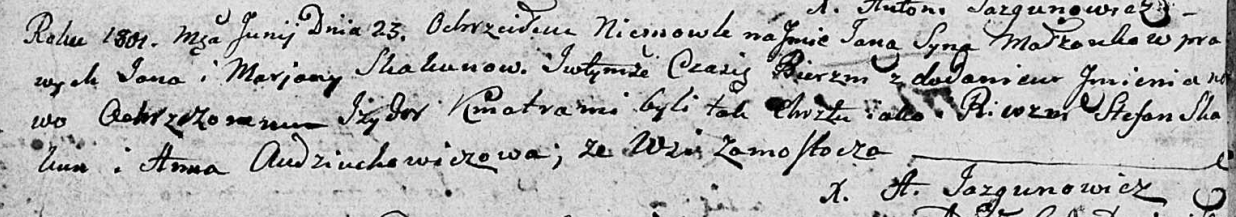 X. Antoni Jazgunowicz
Roku 1801. Mca Junij Dnia 23. Ochrzciłem Niemowle na Jmie Jana Syna Małzonkow pra
wych Jana i Marjany Skakunow. Jwtymże Czasie Bierzm z dodaniem Jmienia no
wo Ochrzczonemu Jzydor Kmotrami byli tak Chrztu iako Bierzm Stefan Ska
kun i Anna Audziuchowiczowa; ze Wsi Zamostocza
X. A. Jazgunowicz